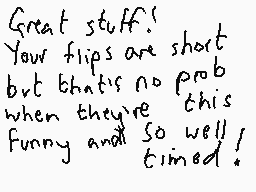 Great stuff!
Your flips are short
but that's no prob
when they're this
funny and so well
timed!